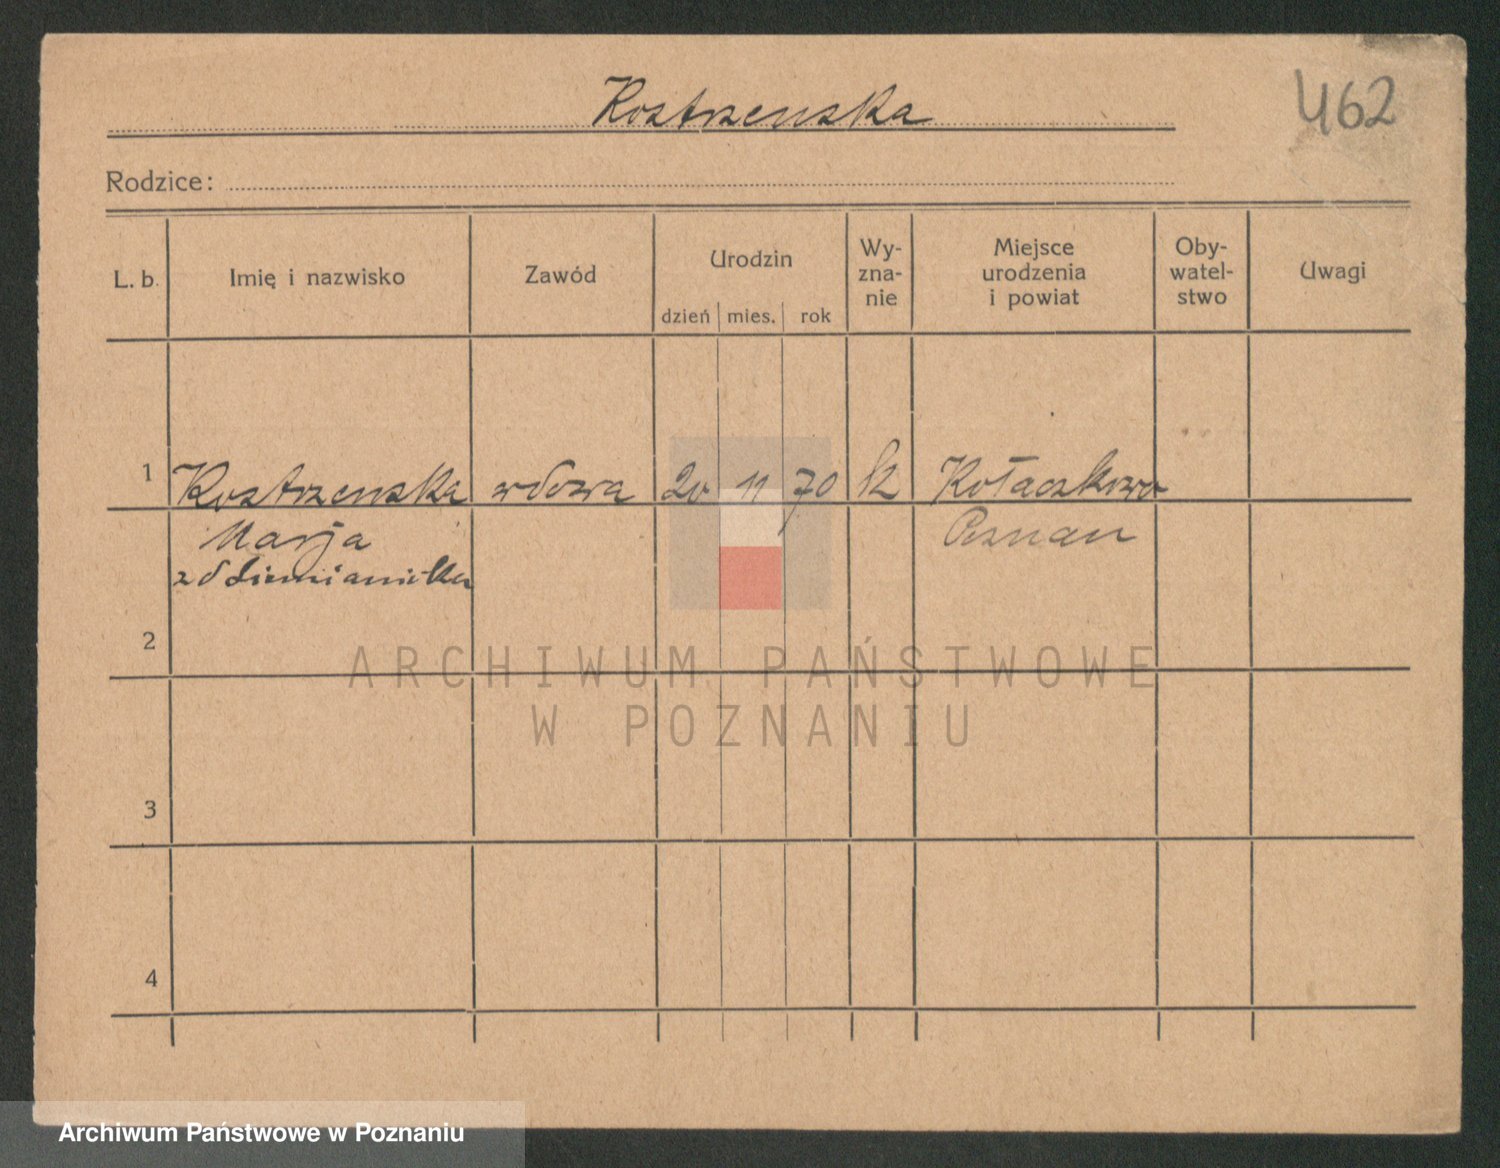 Kostrzenska
462
Rodzice:
L. b. Imię i nazwisko Zawód Urodzin dzień mies. rok Wy-zna-nie Miejsce urodzenia i powiat Oby-watel-stwo Uwagi
1 Kostrzenska wdowa 20 11 70 k Kołaczkowo
Marja Poznan
2
3
4
ARCHIWUM PAŃSTWOWE
W POZNANIU
Archiwum Państwowe w Poznaniu